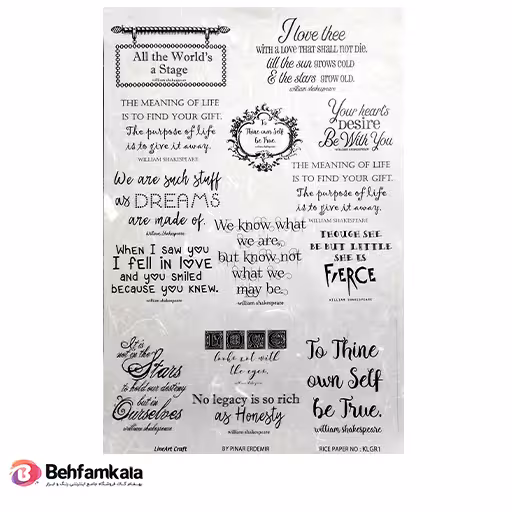 All the World's
a Stage
william shakespeare
I love thee
WITH A LOVE THAT SHALL NOT DIE.
till the sun GROWS COLD
& the stars GROW OLD.
william shakespeare
THE MEANING OF LIFE
IS TO FIND YOUR GIFT.
The purpose of life
is to give it away.
WILLIAM SHAKESPEARE
To
Thine own Self
be True.
william shakespeare
Your heart's
DESIRE
Be With You
WILLIAM SHAKESPEARE
THE MEANING OF LIFE
IS TO FIND YOUR GIFT.
The purpose of life
is to give it away.
WILLIAM SHAKESPEARE
We are such stuff
as DREAMS
are made of.
William Shakespeare
We know what
we are,
but know not
what we
may be.
william shakespeare
THOUGH SHE
BE BUT LITTLE
SHE IS
FIERCE
WILLIAM SHAKESPEARE
WHEN I SAW YOU
I FELL IN LOVE
AND YOU SMILED
BECAUSE YOU KNEW.
william shakespeare
It is
not in the
Stars
to hold our destiny
but in
Ourselves
william shakespeare
LOVE
looks not with
the eyes,
william shakespeare
No legacy is so rich
as Honesty
william shakespeare
To Thine
own Self
be True.
william shakespeare
LineArt Craft
BY PINAR ERDEMIR
RICE PAPER NO : KLGR1
Behfamkala